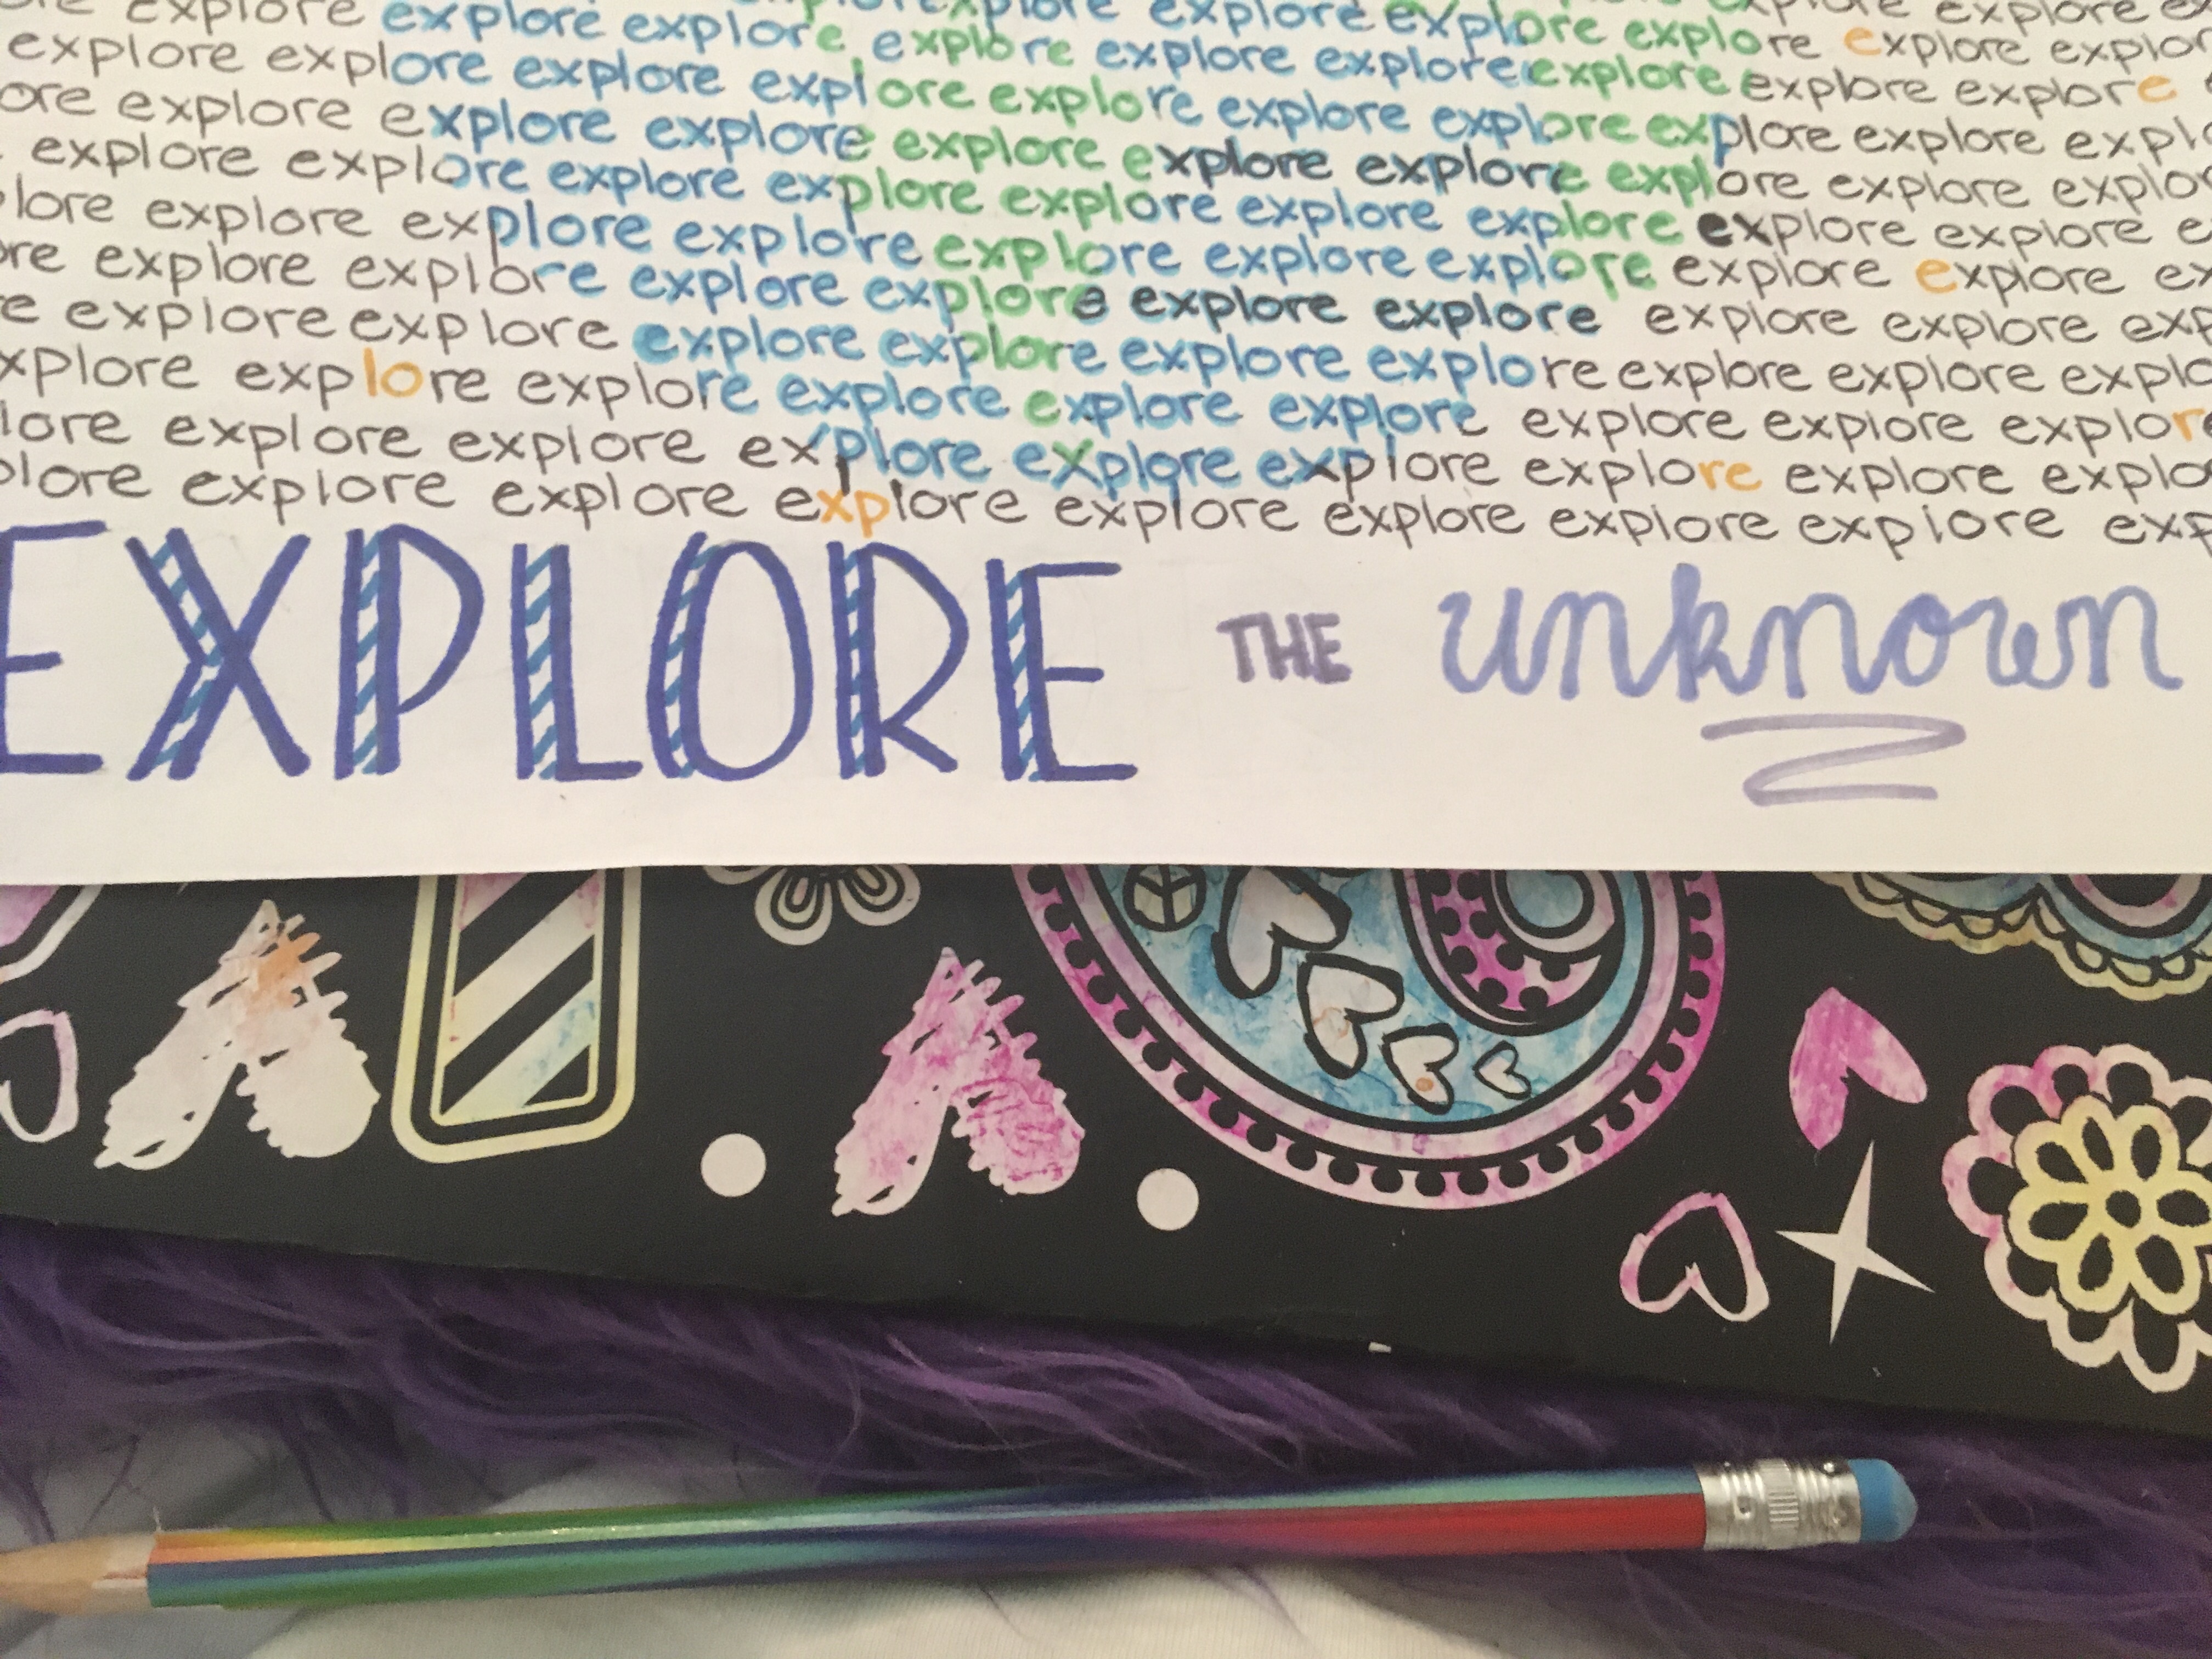 explore explore explore explore explore explore explore explore
explore explore explore explore explore explore explore explore explore explor
ore explore explore explore explore explore explore explore explore explore
explore explore explore explore explore explore explore explore explore
plore explore explore explore explore explore explore explore explore explor
ore explore explore explore explore explore explore explore explore
re explore explore explore explore explore explore explore explore exp
xplore explore explore explore explore explore explore explore explore explo
lore explore explore explore explore explore explore explore explore
plore explore explore explore explore explore explore explore exp
EXPLORE THE unknown